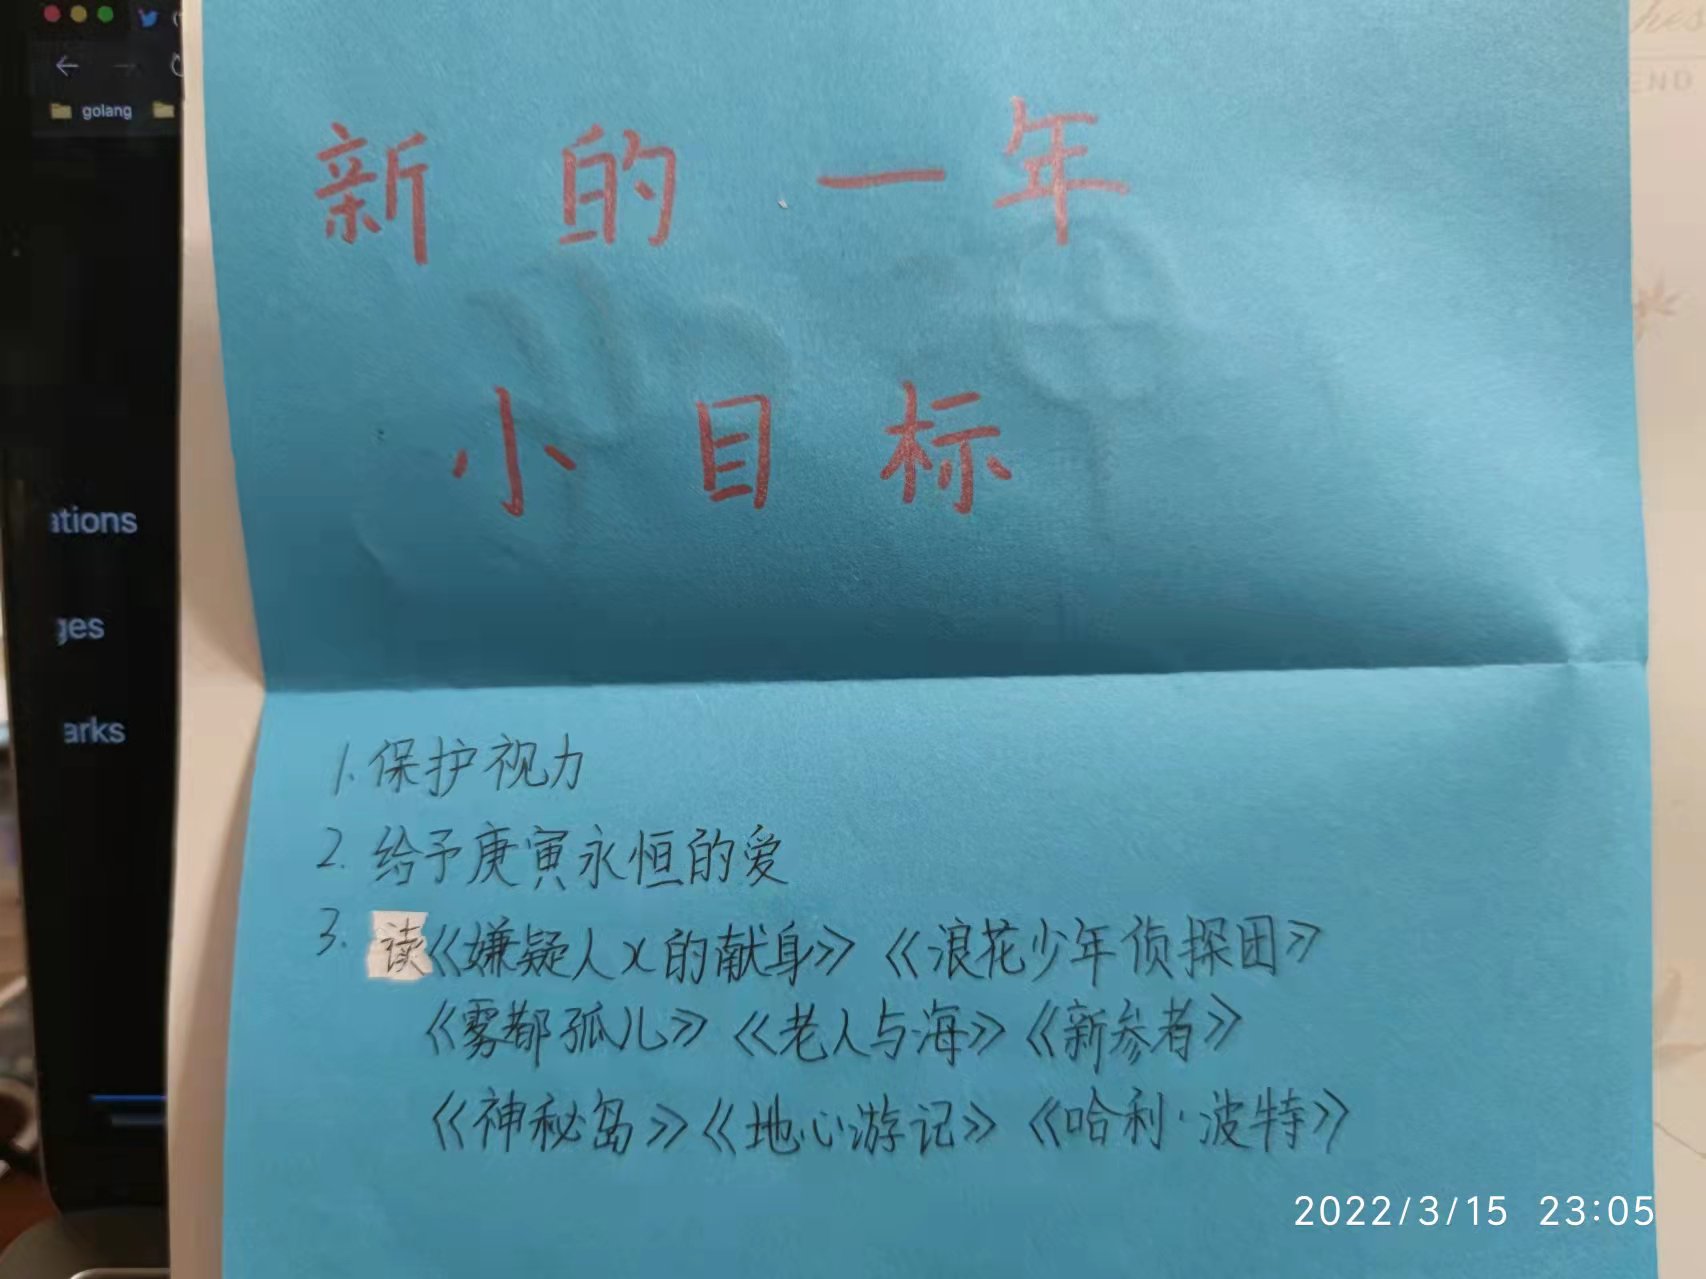 golang
新的一年
小目标
ations
ges
arks
1.保护视力
2.给予庚寅永恒的爱
3.读《嫌疑人x的献身》《浪花少年侦探团》
《雾都孤儿》《老人与海》《新参者》
《神秘岛》《地心游记》《哈利·波特》
2022/3/15 23:05